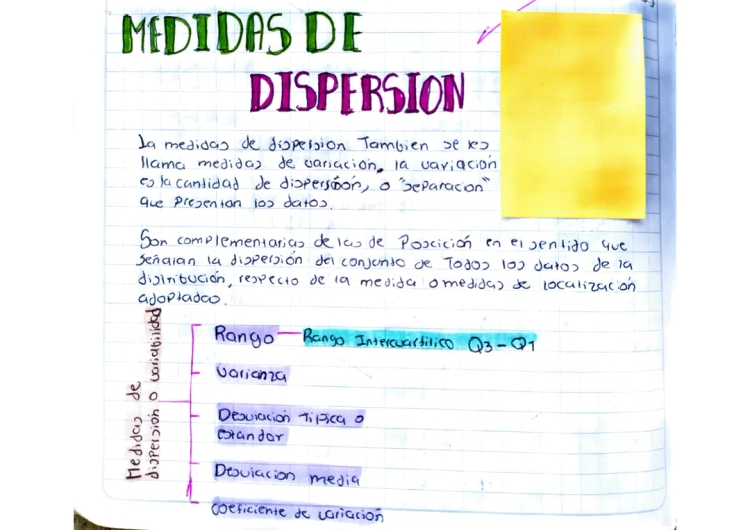 MEDIDAS DE
DISPERSION
La medidas de dispersion Tambien se les
llama medidas de variación, la variación
es la cantidad de dispersión, o "separacion"
que Presentan los datos.
Son complementarias de las de Poscición en el sentido que
señalan la dispersión del conjunto de Todos los datos de la
distribución, respecto de la medida o medidas de localización
adoptadas.
Medidas de
dispersión o variabilidad
Rango — Rango Intercuartilico Q3-Q1
Varianza
Desviación Tipica o
Estandar
Desviacion media
Coeficiente de variación